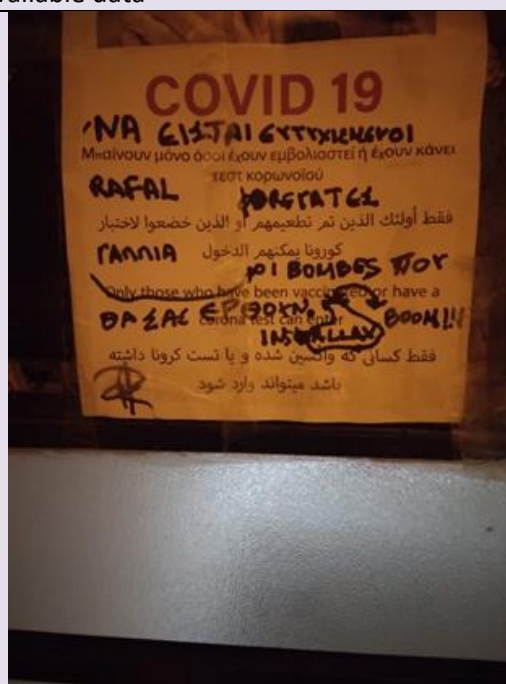 COVID 19
ΝΑ ΕΙΣΤΑΙ ΕΥΤΥΧΙΣΜΕΝΟΙ
Μπαίνουν μόνο όσοι έχουν εμβολιαστεί ή έχουν κάνει
τεστ κορωνοϊού
RAFAL ΦΡΕΓΑΤΕΣ
فقط أولئك الذين تم تطعيمهم أو الذين خضعوا لاختبار
ΓΑΛΛΙΑ كورونا يمكنهم الدخول
ΟΙ ΒΟΜΒΕΣ ΠΟΥ
Only those who have been vaccinated or have a
ΘΑ ΣΑΣ ΕΡΘΟΥΝ. BOOM!!
corona test can enter
INSALLAX
فقط کسانی که واکسین شده و یا تست کرونا داشته
باشد میتواند وارد شود